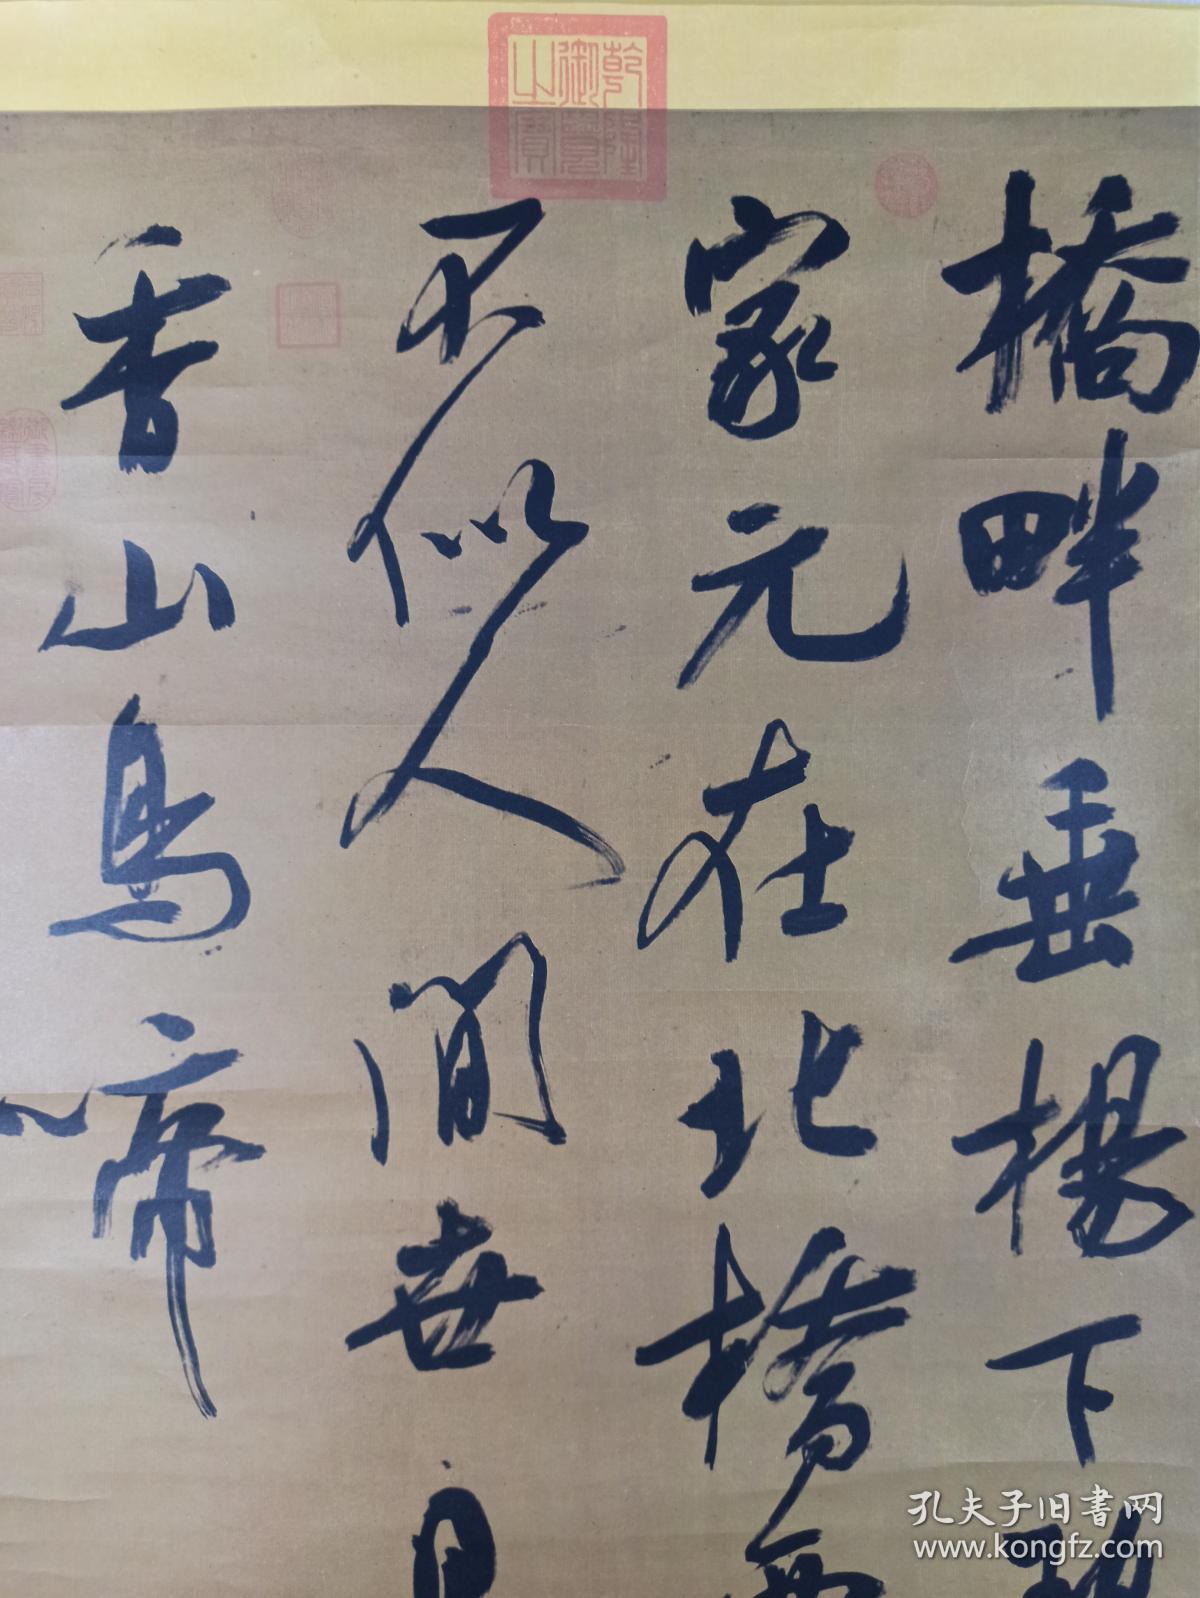 乾隆御覽之寶
橋畔垂楊下碧
家元在北橋西
不似人間世日
香山鳥啼
孔夫子旧书网
www.kongfz.com